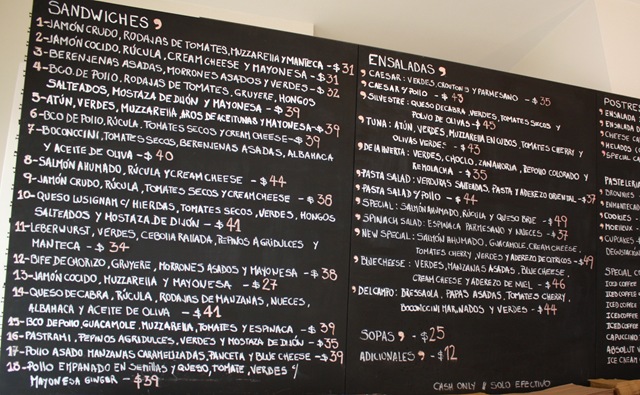 SANDWICHES
1-JAMÓN CRUDO, RODAJAS DE TOMATES, MUZZARELLA Y MANTECA - $31
2-JAMÓN COCIDO, RÚCULA, CREAM CHEESE Y MAYONESA - $31
3-BERENJENAS ASADAS, MORRONES ASADOS Y VERDES - $32
4-BCO. DE POLLO, RODAJAS DE TOMATES, GRUYERE, HONGOS
SALTEADOS, MOSTAZA DE DIJÓN Y MAYONESA - $39
5-ATÚN, VERDES, MUZZARELLA, AROS DE ACEITUNAS Y MAYONESA - $39
6-BCO DE POLLO, RÚCULA, TOMATES SECOS Y CREAM CHEESE - $39
7-BOCONCCINI, TOMATES SECOS, BERENJENAS ASADAS, ALBAHACA
Y ACEITE DE OLIVA - $40
8-SALMÓN AHUMADO, RÚCULA Y CREAM CHEESE - $44
9-JAMÓN CRUDO, RÚCULA, TOMATES SECOS Y CREAM CHEESE - $38
10-QUESO LUSIGNAM C/ HIERBAS, TOMATES SECOS, VERDES, HONGOS
SALTEADOS Y MOSTAZA DE DIJÓN - $41
11-LEBERWURST, VERDES, CEBOLLA RALLADA, PEPINOS AGRIDULCES Y
MANTECA - $34
12-BIFE DE CHORIZO, GRUYERE, MORRONES ASADOS Y MAYONESA - $38
13-JAMÓN COCIDO, MUZZARELLA Y MAYONESA - $27
14-QUESO DE CABRA, RÚCULA, RODAJAS DE MANZANAS, NUECES,
ALBAHACA Y ACEITE DE OLIVA - $41
15-BCO DE POLLO, GUACAMOLE, MUZZARELLA, TOMATES Y ESPINACA - $39
16-PASTRAMI, PEPINOS AGRIDULCES, VERDES Y MOSTAZA DE DIJON - $35
17-POLLO ASADO MANZANAS CARAMELIZADAS, PANCETA Y BLUE CHEESE - $39
18-POLLO EMPANADO EN SEMILLAS Y QUESO, TOMATE, VERDES Y
MAYONESA GINGER - $39
ENSALADAS
CAESAR: VERDES, CROUTONS Y PARMESANO - $35
CAESAR Y/POLLO - $43
SILVESTRE: QUESO DE CABRA, VERDES, TOMATES SECOS Y
POLVO DE OLIVAS - $45
TUNA: ATÚN, VERDES, MUZZARELLA EN CUBOS, TOMATES CHERRY Y
OLIVAS VERDES - $43
DE LA HUERTA: VERDES, CHOCLO, ZANAHORIA, REPOLLO COLORADO Y
REMOLACHA - $35
PASTA SALAD: VERDURAS SALTEADAS, PASTA Y ADEREZO ORIENTAL - $37
PASTA SALAD Y/POLLO - $44
SPECIAL: SALMÓN AHUMADO, RÚCULA Y QUESO BRIE - $49
SPINACH SALAD: ESPINACA PARMESANO Y NUECES - $37
NEW SPECIAL: SALMÓN AHUMADO, GUACAMOLE, CREAM CHEESE,
TOMATES CHERRY, VERDES Y ADEREZO DE CITRICOS - $49
BLUE CHEESE: VERDES, MANZANAS ASADAS, BLUE CHEESE,
CREAM CHEESE Y ADEREZO DE MIEL - $46
DEL CAMPO: BRESSAOLA, PAPAS ASADAS, TOMATES CHERRY,
BOCONCCINI MARINADOS Y VERDES - $44
SOPAS - $25
ADICIONALES - $12
CASH ONLY // SOLO EFECTIVO
POSTRES
ENSALADA
ENSALADA
CHEESE
HELADOS
SPECIAL
PASTELER
BROWNIES
COOKIES
CUPCAKES
SPECIAL
ICED COFFEE
ICED COFFEE
ICED COFFEE
ICED COFFEE
CAPUCCINO
ABSOLUT
ICE CREAM